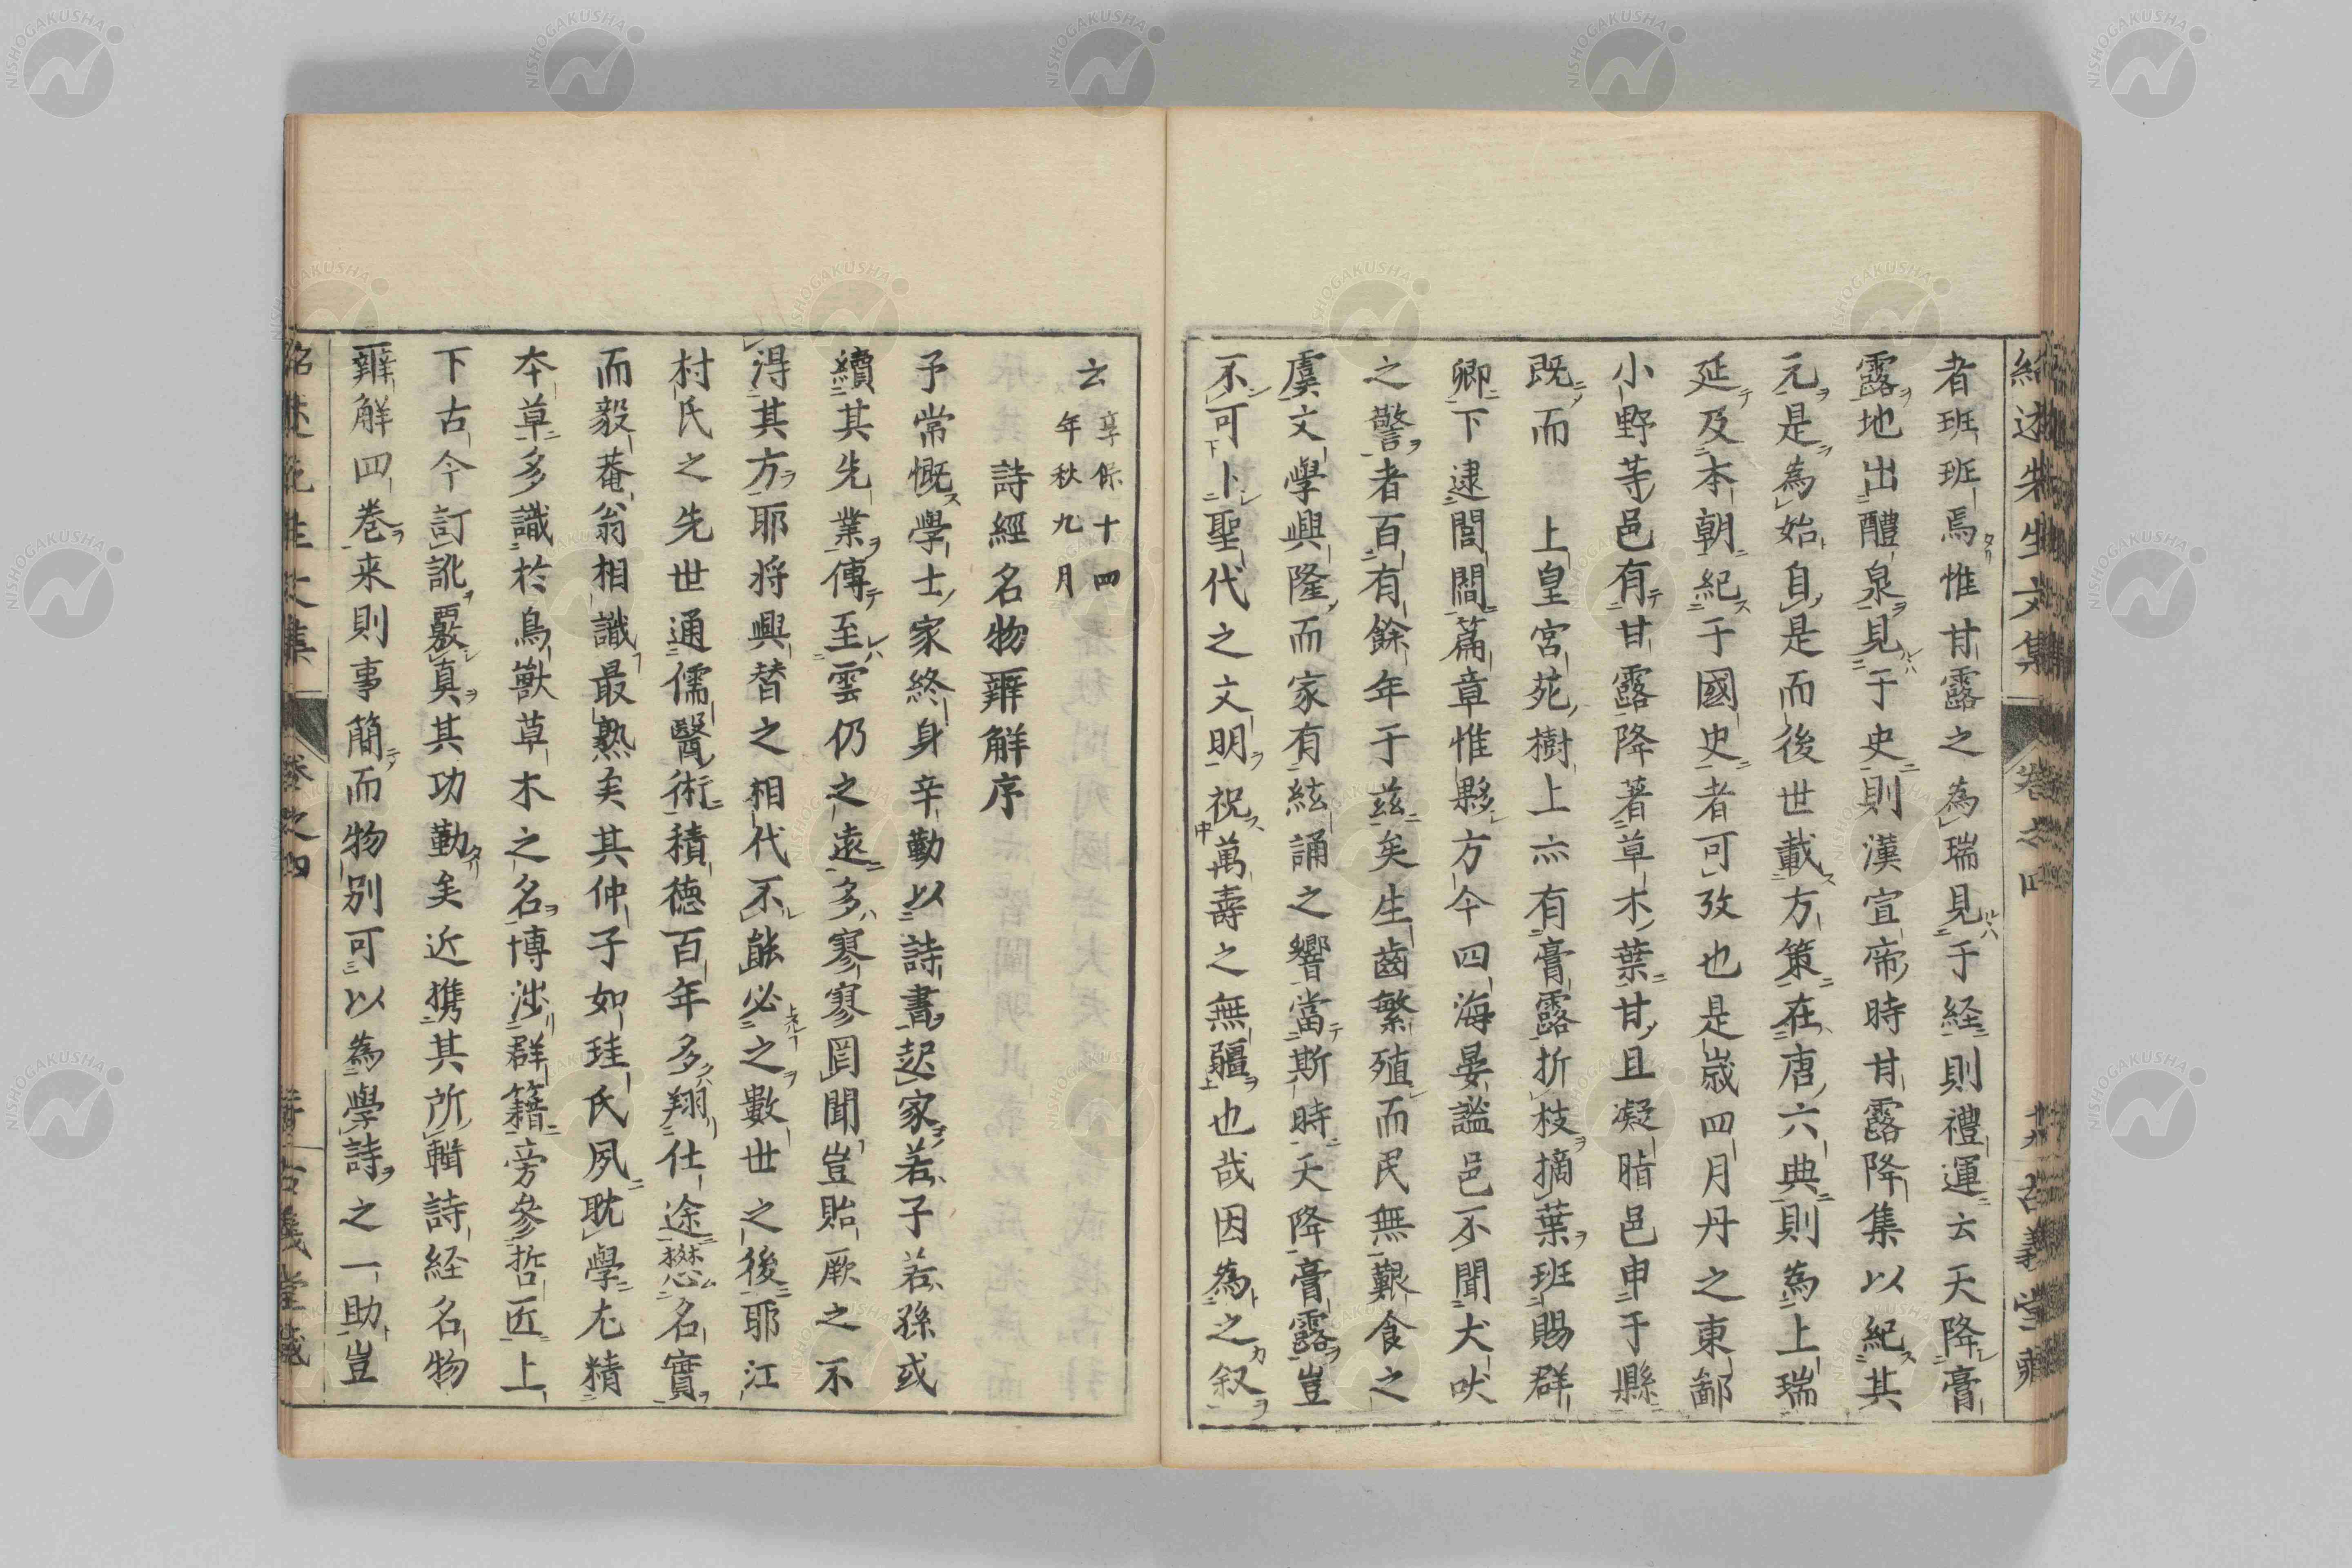 紹述先生文集 卷之四 古義堂藏
者班班焉惟甘露之為瑞見于経則禮運云天降膏
露地出醴泉見于史則漢宣帝時甘露降集以紀其
元是為始自是而後世載方策在唐六典則為上瑞
延及本朝紀于國史者可攷也是歳四月丹之東鄙
小野等邑有甘露降著草木葉甘且凝脂邑申于縣
既而 上皇宮苑樹上亦有膏露折枝摘葉班賜群
卿下逮閭閻篇章惟夥方今四海晏謐邑不聞犬吠
之警者百有餘年于茲矣生齒繁殖而民無艱食之
虞文學興隆而家有絃誦之響當斯時天降膏露豈
不可卜聖代之文明祝萬壽之無疆也哉因為之叙
云 享保十四年秋九月
詩經名物辨解序
予常慨學士家終身辛勤以詩書起家若子若孫或
續其先業傳至雲仍之遠多寥寥罔聞豈貽厥之不
得其方耶将興替之相代不能必之數世之後耶江
村氏之先世通儒醫術積德百年多翔仕途懋名實
而毅菴翁相識最熟矣其仲子如珪氏夙耽學尤精
本草多識於鳥獸草木之名博渉群籍旁參哲匠上
下古今訂訛覈真其功勤矣近携其所輯詩経名物
辨解四巻来則事簡而物別可以為學詩之一助豈
紹述先生文集 卷之四 古義堂藏